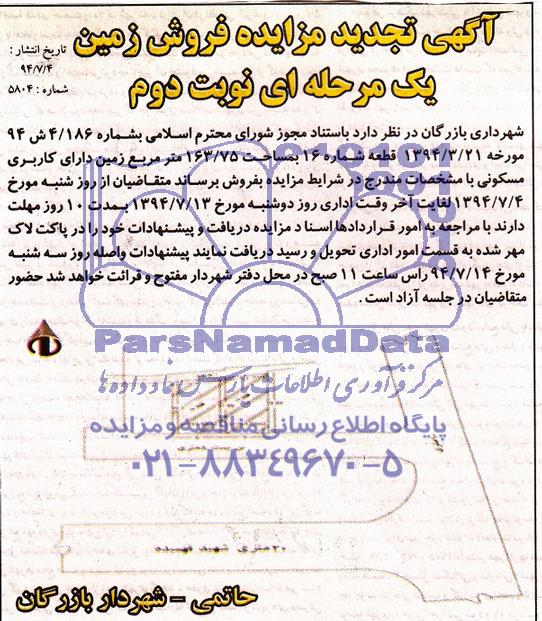 آگهی تجدید مزایده فروش زمین
یک مرحله ای نوبت دوم
تاریخ انتشار :
۹۴/۷/۴
شماره : ۵۸۰۴
شهرداری بازرگان در نظر دارد باستناد مجوز شورای محترم اسلامی بشماره ۴/۱۸۶ ش ۹۴
مورخه ۱۳۹۴/۳/۲۱ قطعه شماره ۱۶ بمساحت ۱۶۳/۷۵ متر مربع زمین دارای کاربری
مسکونی با مشخصات مندرج در شرایط مزایده بفروش برساند متقاضیان از روز شنبه مورخ
۱۳۹۴/۷/۴ لغایت آخر وقت اداری روز دوشنبه مورخ ۱۳۹۴/۷/۱۳ بمدت ۱۰ روز مهلت
دارند با مراجعه به امور قراردادها اسناد مزایده دریافت و پیشنهادات خود را در پاکت لاک
مهر شده به قسمت امور اداری تحویل و رسید دریافت نمایند پیشنهادات واصله روز سه شنبه
مورخ ۹۴/۷/۱۴ راس ساعت ۱۱ صبح در محل دفتر شهردار مفتوح و قرائت خواهد شد حضور
متقاضیان در جلسه آزاد است .
ParsNamadData
مرکز فرآوری اطلاعات پارس نماد داده ها
پایگاه اطلاع رسانی مناقصه و مزایده
۰۲۱-۸۸۳۴۹۶۷۰-۵
۲۰ متری شهید فهمیده
حاتمی - شهردار بازرگان